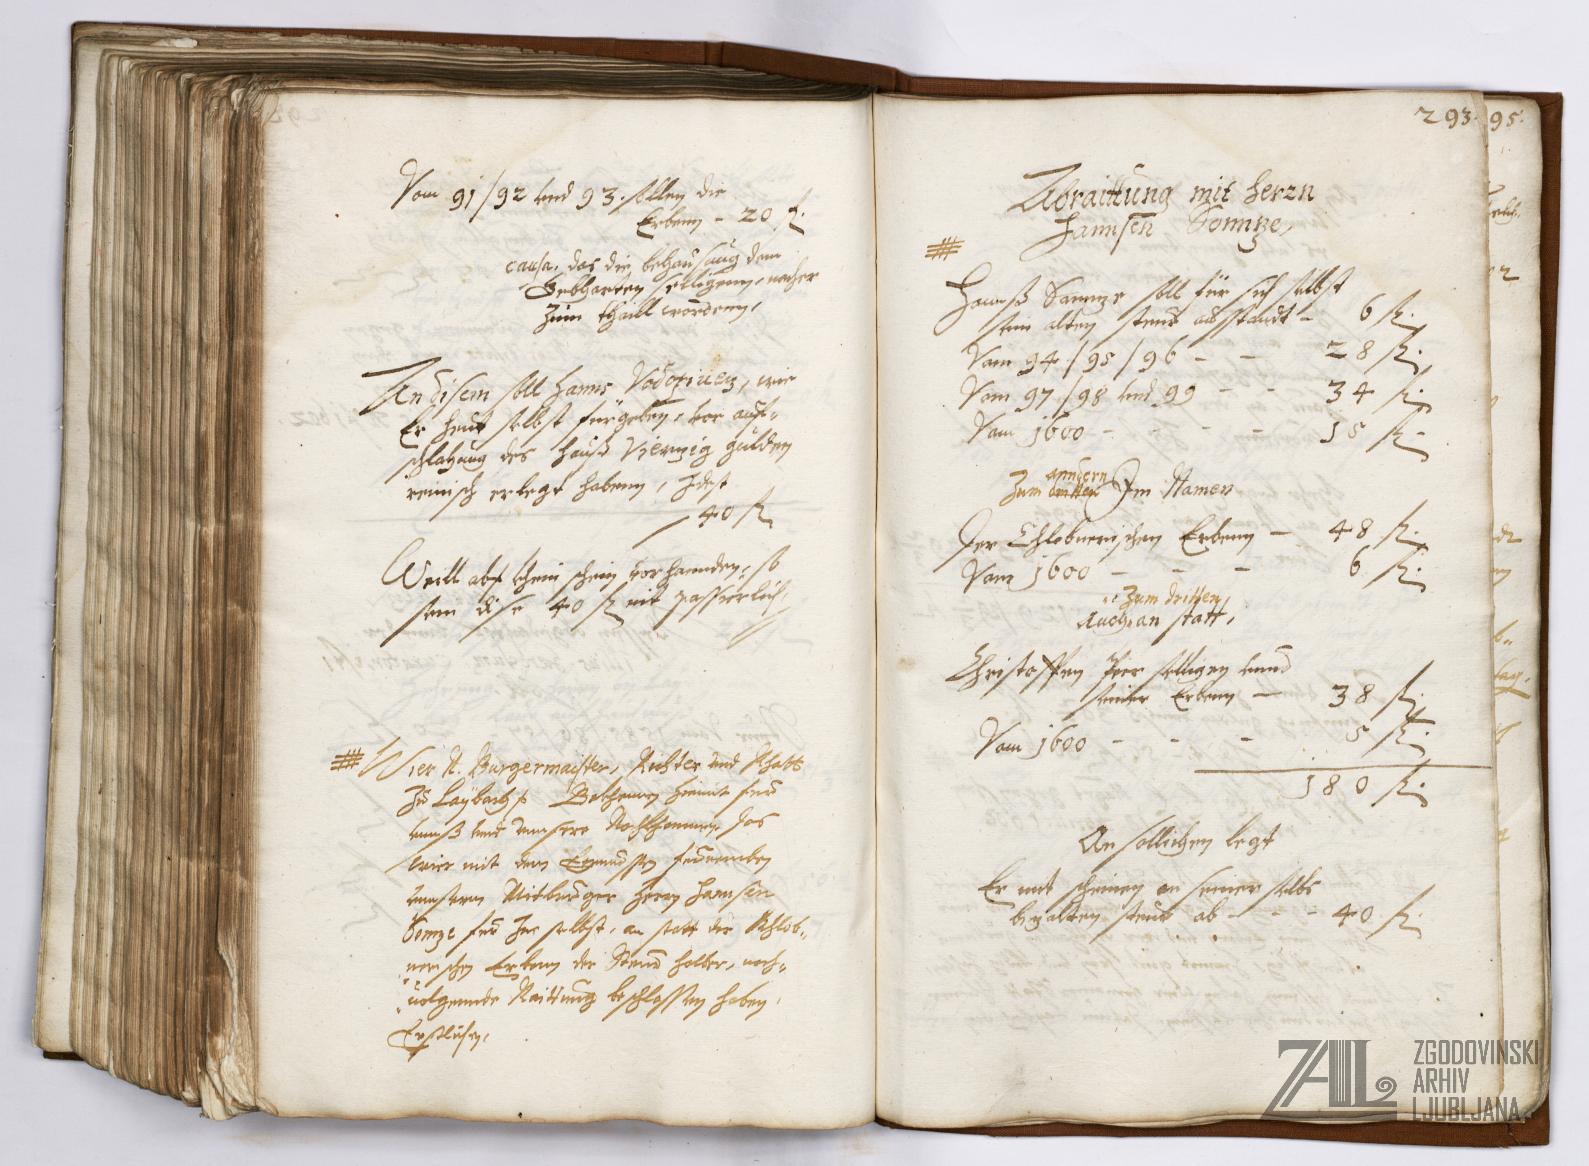 Vom 91/92 vnd 93. sollen die
Erbenn - 20 f.
causa, das die behausung dem
Gebharten selligenn, nacher
zum thaill wordenn,
An disem soll Hanns Vodopiuez, wie
Er heut selbst fürgeben, vor auf-
schlahung des Hauß Vierzig gulden
reinisch erlegt habenn, Idest
40 f.
Weill aber khein schein vorhannden, so
sein dise 40 f. nit passierlich,
Wier N. Burgermaister, Richter vnd Rhatt
Zu Laybach, Bekhennen hiemit für
vnnß vnd vnnsere Nachkhommen, das
wier mit dem
vnnserm Mitburger Herrn Hannsen
Sonnze für Ine selbst, an statt der Khlob-
nerischen Erbenn der Steur halber, nach-
uolgennde Raittung beschlossen haben,
Erstlichen,
293.
95.
Abraittung mit Herrn
Hannsen Sonnze,
Hannß Sonnze soll für sich selbst
ein alten steur ausstandt - 6 f.
Vom 94/95/96 - - 28 f.
Vom 97/98 vnd 99 - - 34 f.
Vom 1600 - - - - 15 f.
anndern
Zum dritten Im Namen
Der Khlobnerischen Erbenn - 48 f.
Vom 1600 - - - 6 f.
Zum dritten
Auch, an statt,
Christoffen selligen vnnd
seiner Erbenn - 38 f.
Vom 1600 - - - 5 f.
180 f.
An sollichen legt
Er mit scheinen an seiner selbs
bezalten steur ab - - - 40 f.
ZAL
ZGODOVINSKI
ARHIV
LJUBLJANA